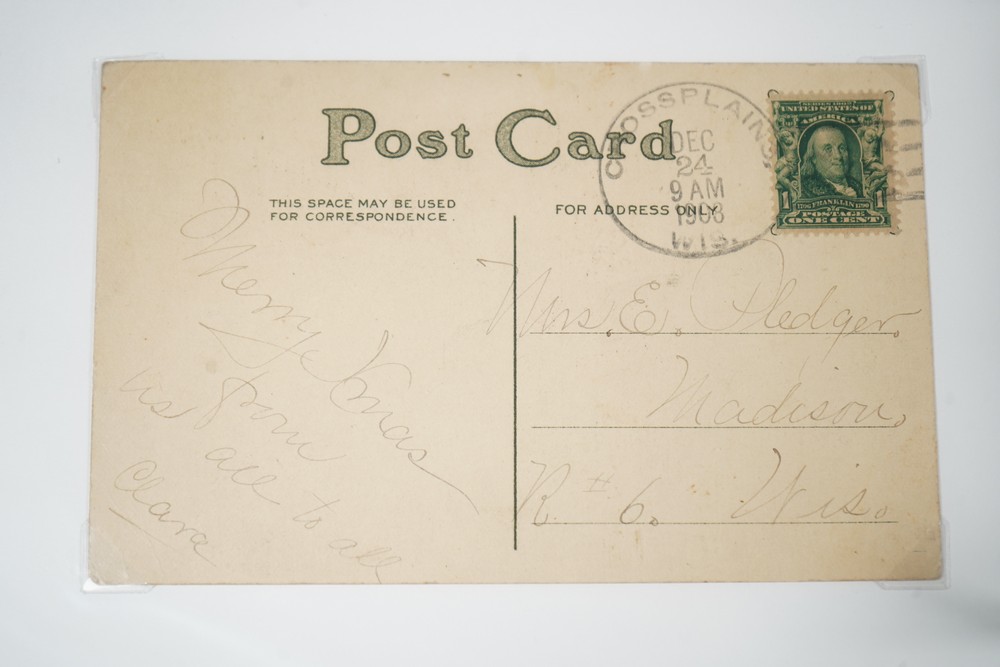 Post Card
THIS SPACE MAY BE USED
FOR CORRESPONDENCE.
FOR ADDRESS ONLY
CROSSPLAINS,
DEC
24
9 AM
1908
WIS.
SERIES 1902
UNITED STATES OF
AMERICA
1 1706 FRANKLIN 1790 1
POSTAGE
ONE CENT
Merry Xmas
from
us all to all
Clara
Mrs. E. Pledger.
Madison,
R # 6. Wis.